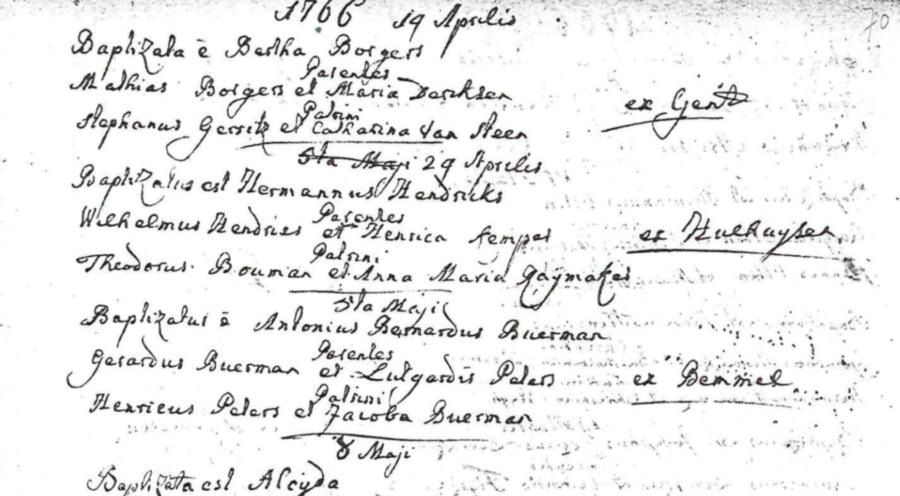 1766 19 Aprilis 70
Baptizata ē Bertha Borgers
Parentes
Mathias Borgers et Maria Dercksen ex Gent
Patrini
Stephanus Gerritz et Catharina Van Steen
5ta Maji 29 Aprilis
Baptizatus est Hermannus Hendricks
Parentes
Wilhelmus Hendries et Henrica Kempes ex Hulhuysen
Patrini
Theodorus Bouman et Anna Maria
5ta Maji
Baptizatus ē Antonius Bernardus Buerman
Parentes
Gerardus Buerman et Lutgardis Peters ex Bemmel
Patrini
Henricus Peters et Jacoba Buerman
8 Maji
Baptizata est Aleyda